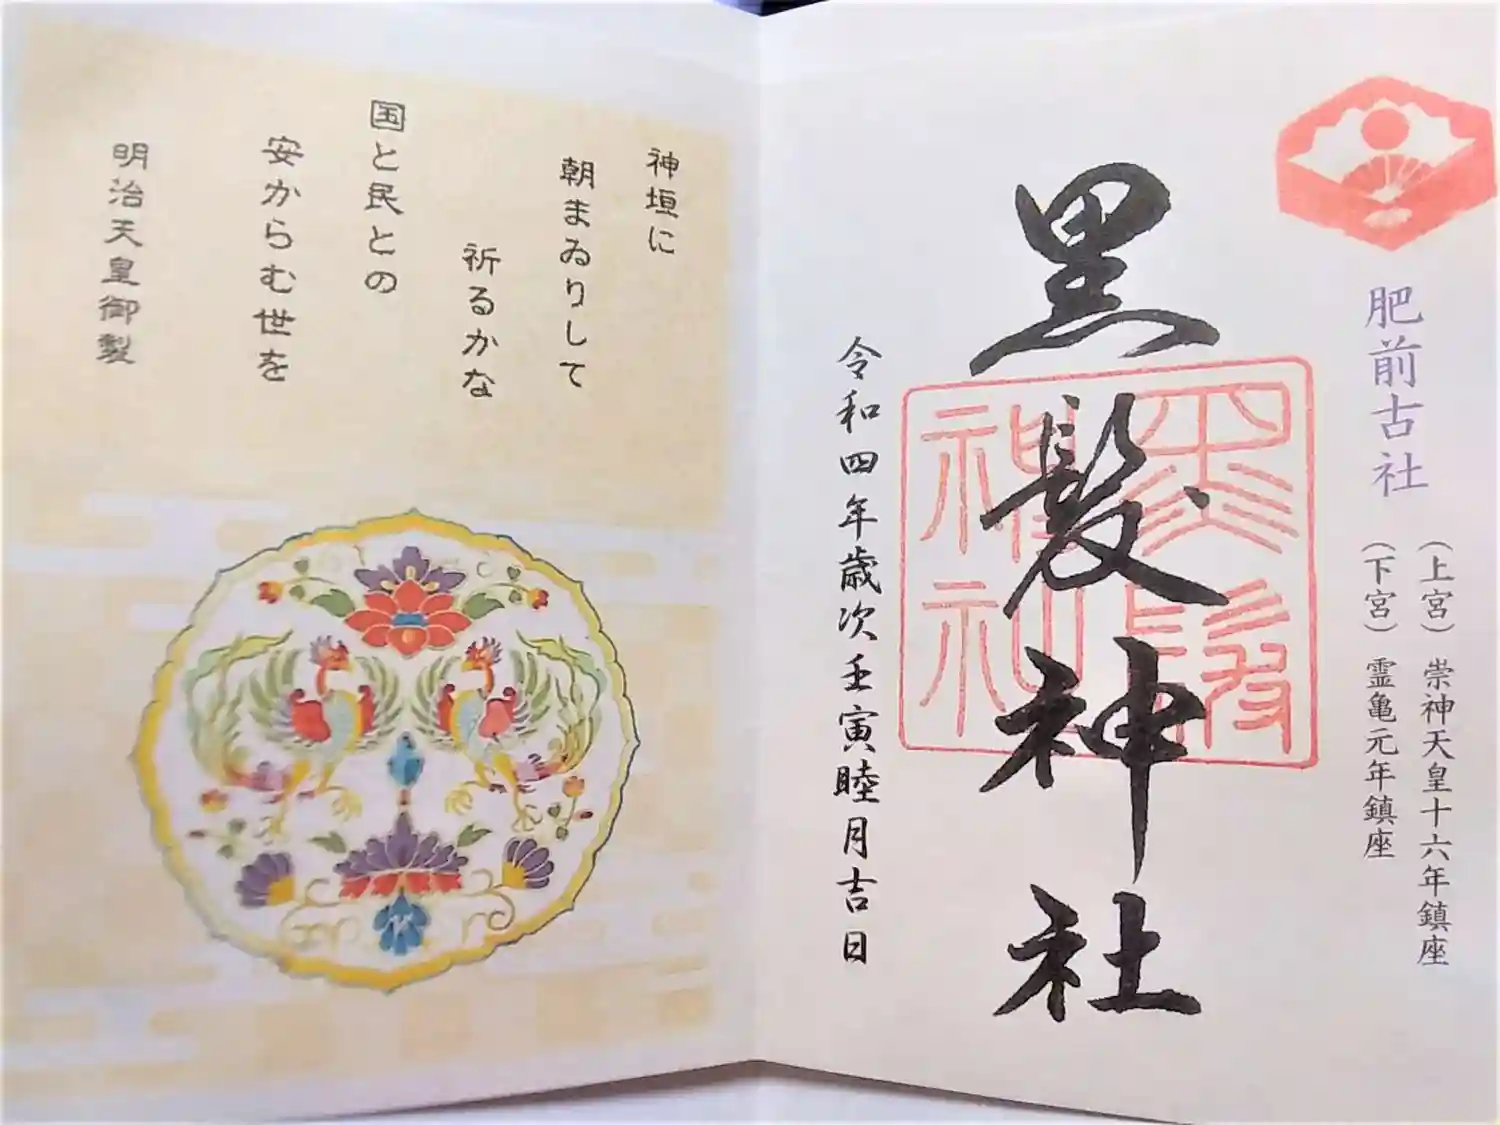 肥前古社
(上宮) 崇神天皇十六年鎮座
(下宮) 霊亀元年鎮座
黒髪神社
黒髪神社
令和四年歳次壬寅睦月吉日
神垣に
朝まゐりして
祈るかな
国と民との
安からむ世を
明治天皇御製